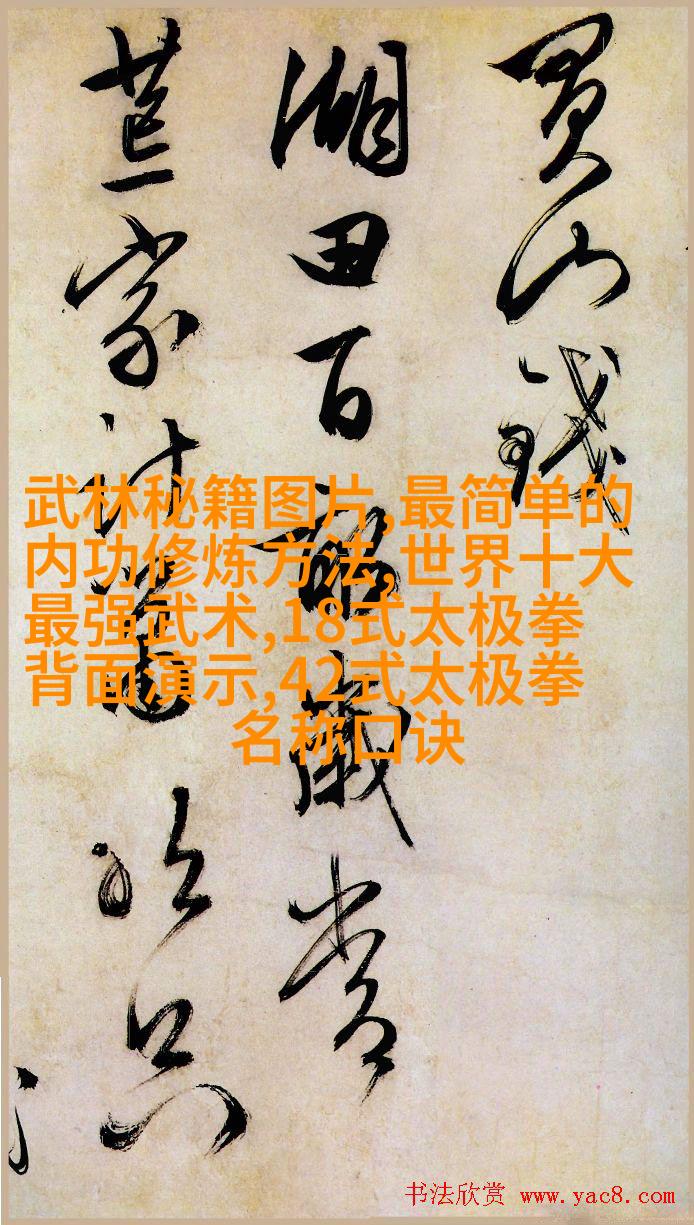 買山錢
湖田百畝歲常
荒家計只
武林秘籍图片,最简单的
内功修炼方法,世界十大
最强武术,18式太极拳
背面演示,42式太极拳
名称口诀
书法欣赏 www.yac8.com